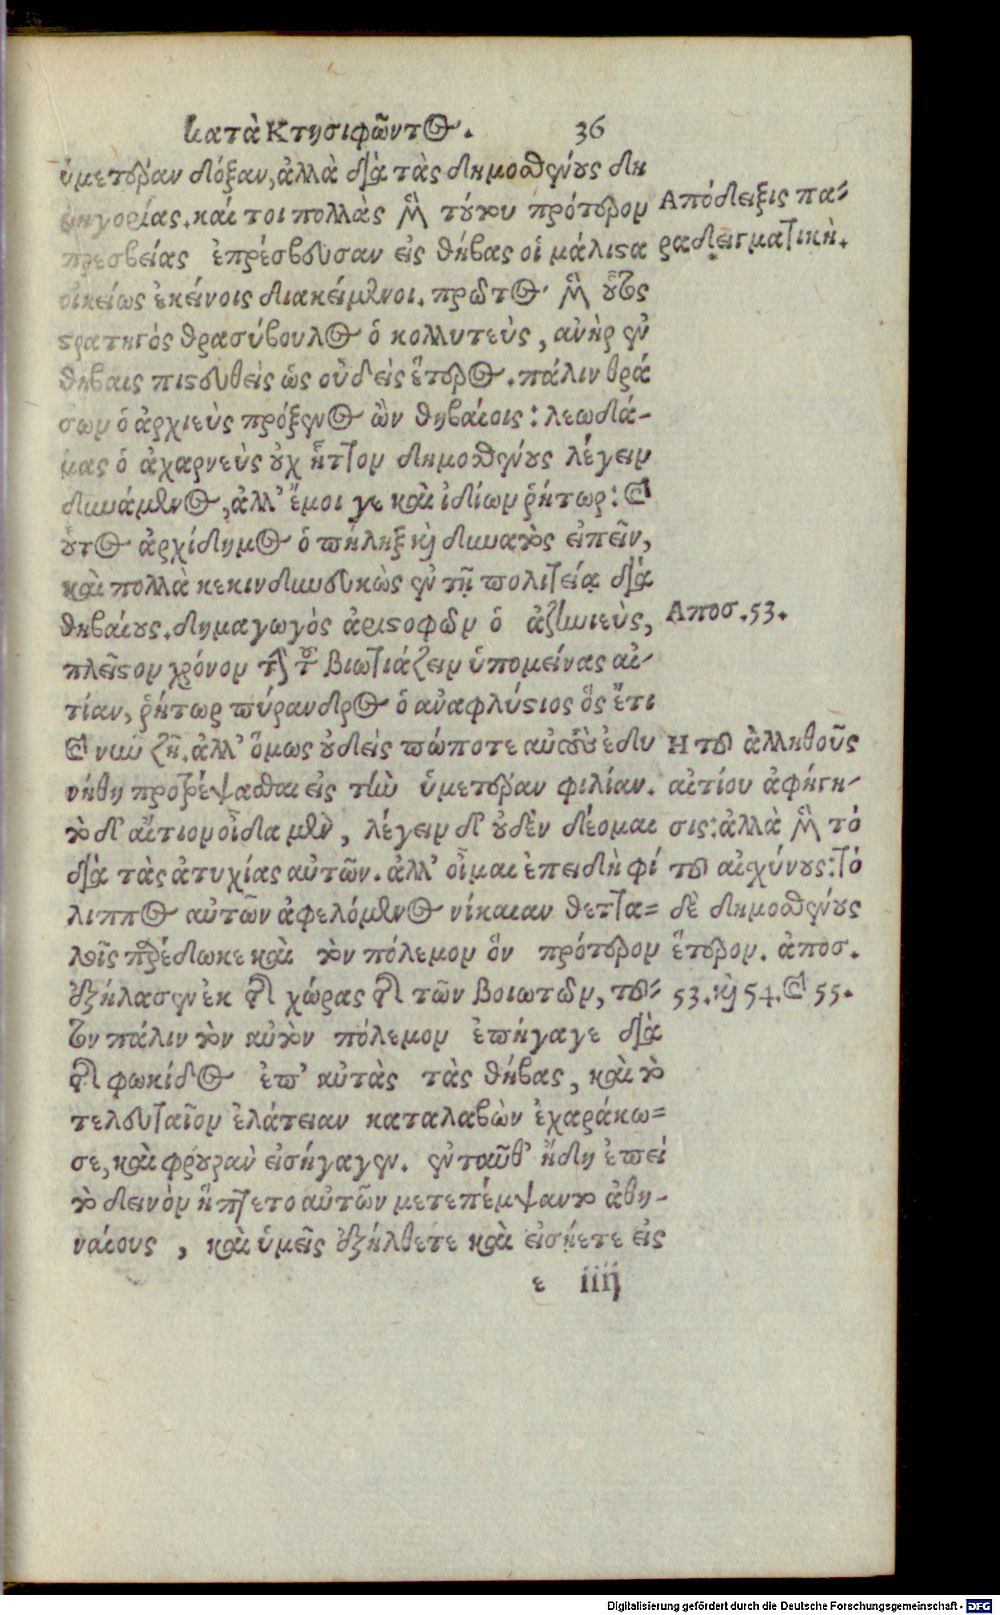 κατὰ Κτησιφῶντος. 36
ὑμετέραν δόξαν, ἀλλὰ διὰ τὰς δημοσθένους δη
μηγορίας. καί τοι πολλὰς μὲν τούτου πρότερον
πρεσβείας ἐπρέσβευσαν εἰς θήβας οἱ μάλιστα
οἰκείως ἐκείνοις διακείμενοι. πρῶτος μὲν οὗτος
στρατηγὸς θρασύβουλος ὁ κολλυτεὺς, ἀνὴρ ἐν
θήβαις πιστευθεὶς ὡς οὐδεὶς ἕτερος. πάλιν θρά
σων ὁ ἀρχιεὺς πρόξενος ὢν θηβαίοις: λεωδά-
μας ὁ ἀχαρνεὺς οὐχ ἧττον δημοσθένους λέγειν
δυνάμενος, ἀλλ' ἔμοι γε καὶ ἰδίων ῥήτωρ: καὶ
οὗτος ἀρχίδημος ὁ πήληξ καὶ δυνατὸς εἰπεῖν,
καὶ πολλὰ κεκινδυνευκὼς ἐν τῇ πολιτείᾳ διὰ
θηβαίους. δημαγωγὸς ἀριστοφῶν ὁ ἀζηνιεὺς,
πλεῖστον χρόνον τὴν τοῦ βιωτιάζειν ὑπομείνας αἰ-
τίαν, ῥήτωρ πύρανδρος ὁ ἀναφλύστιος ὃς ἔτι
καὶ νῦν ζῇ. ἀλλ' ὅμως οὐδεὶς πώποτε αὐτοὺς ἐδυ
νήθη προτρέψασθαι εἰς τὴν ὑμετέραν φιλίαν.
τὸ δ' αἴτιον οἶδα μὲν, λέγειν δ' οὐδὲν δέομαι
διὰ τὰς ἀτυχίας αὐτῶν. ἀλλ' οἶμαι ἐπειδὴ φί
λιππος αὐτῶν ἀφελόμενος νίκαιαν θεττα=
λοῖς παρέδωκε καὶ τὸν πόλεμον ὃν πρότερον
ἐξήλασεν ἐκ τῆς χώρας τῆς τῶν βοιωτῶν, τοῦ-
τον πάλιν τὸν αὐτὸν πόλεμον ἐπήγαγε διὰ
τῆς φωκίδος ἐπ' αὐτὰς τὰς θήβας, καὶ τὸ
τελευταῖον ἐλάτειαν καταλαβὼν ἐχαράκω=
σε, καὶ φρουρὰν εἰσήγαγεν. ἐνταῦθ' ἤδη ἐπεὶ
τὸ δεινὸν ἥπτετο αὐτῶν μετεπέμψαντο ἀθη-
ναίους, καὶ ὑμεῖς ἐξήλθετε καὶ εἰσῄετε εἰς
ε iiij
Ἀπόδειξις πα-
ραδειγματικὴ.
Αποσ. 53.
Η τοῦ ἀλληθοῦς
αἰτίου ἀφήγη-
σις: ἀλλὰ μὲν τό
τοῦ αἰσχύνους: τό
δὲ δημοσθένους
ἕτερον. ἀποσ.
53. καὶ 54. καὶ 55.
Digitalisierung gefördert durch die Deutsche Forschungsgemeinschaft - DFG